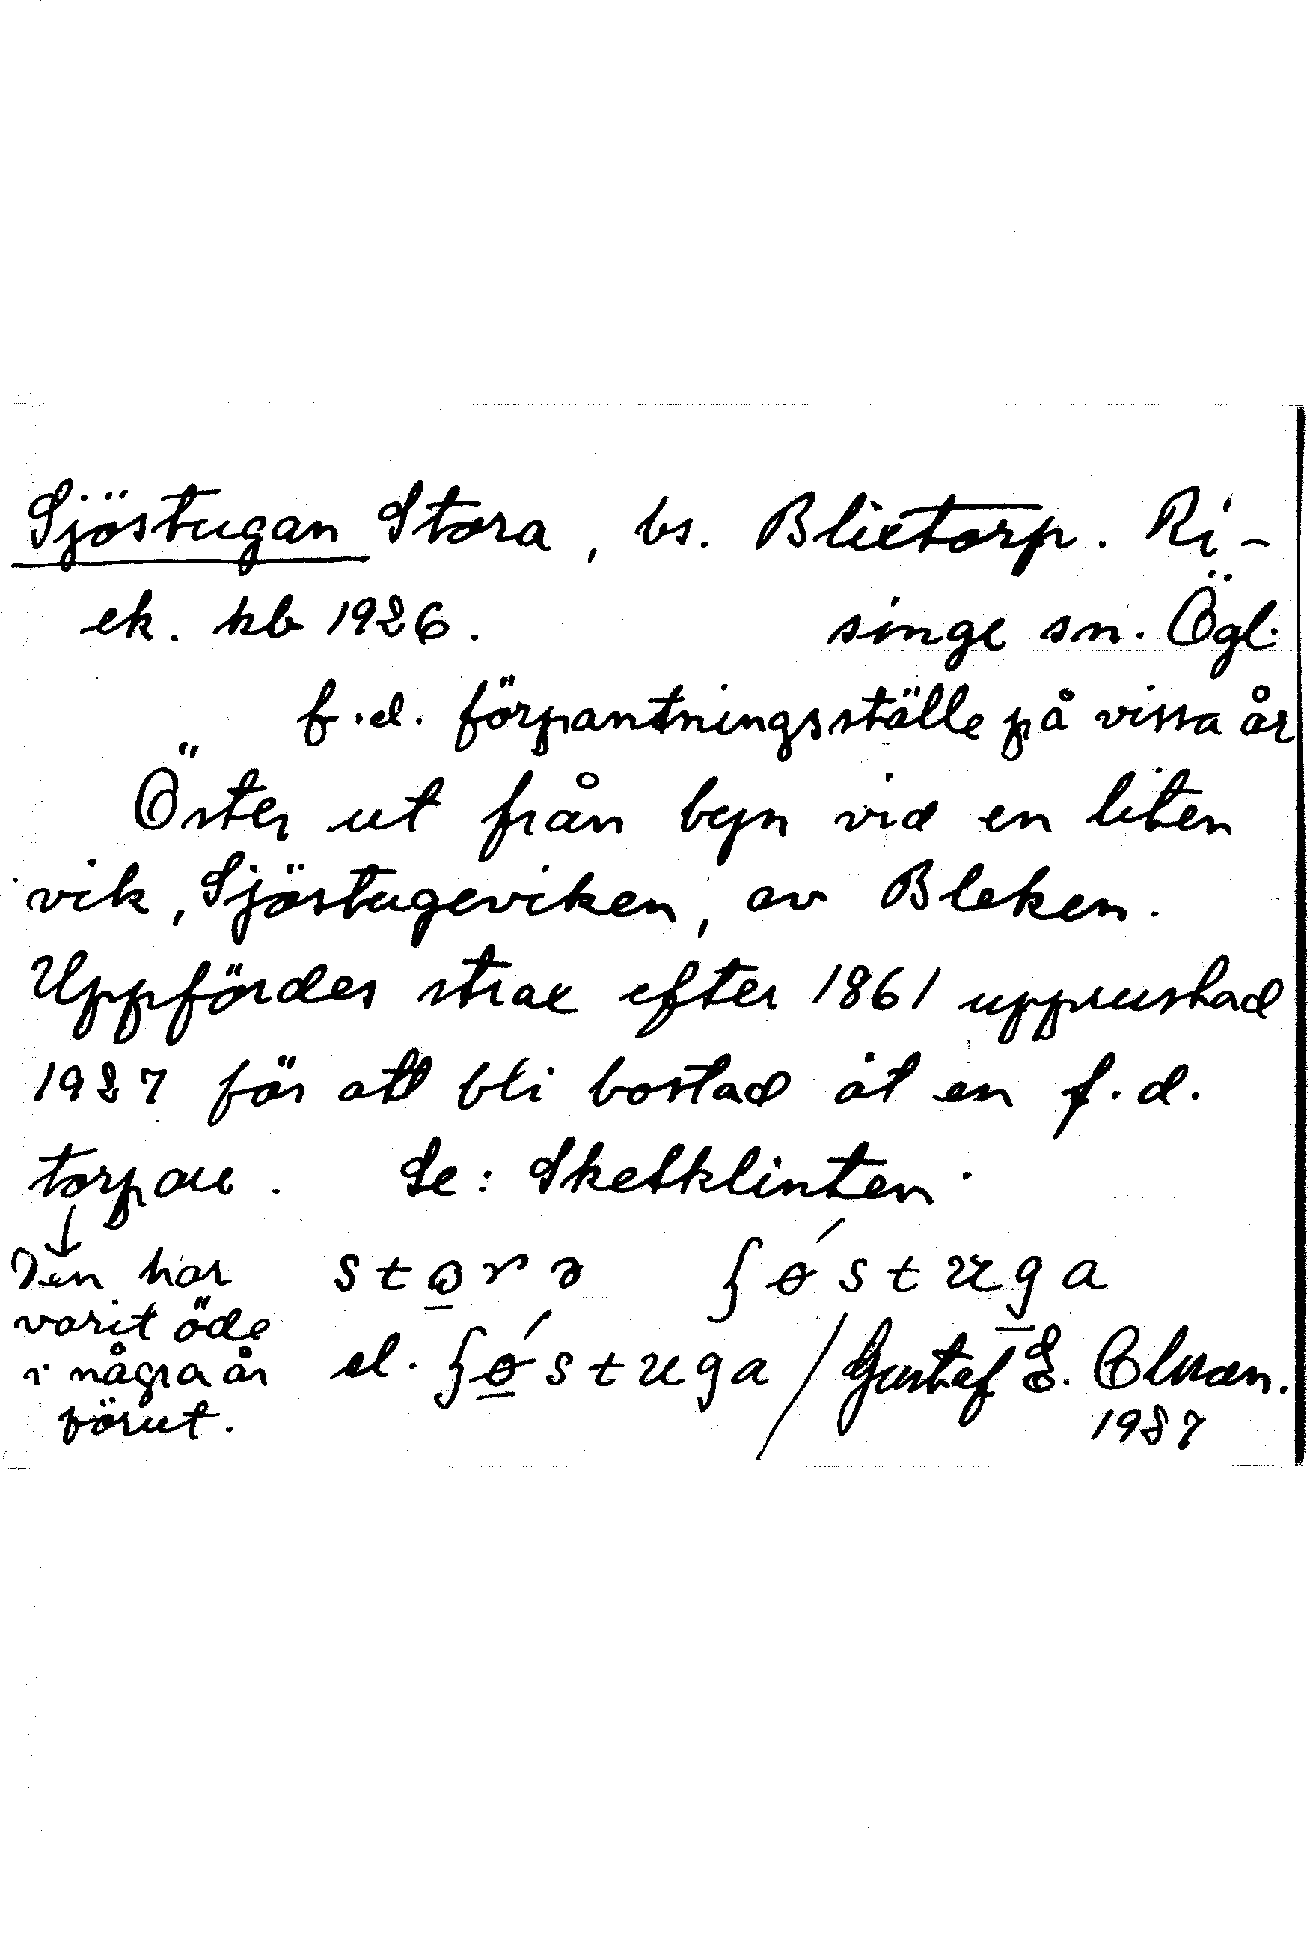 Sjöstugan Stora, bs. Blixtorp. Ri-
ek. kb 1926. singe sn. Ögl.
f.d. förpantningsställe på vissa år
Öster ut från byn vid en liten
vik, Sjöstugeviken, av Bleken.
Uppfördes strax efter 1861 upprustad
1927 för att bli bostad åt en f.d.
torpare. Se:
↓
Den har
varit öde
i några år
förut.
storə ʃøstuga
el. ʃøstuga / Gustaf E.
1987